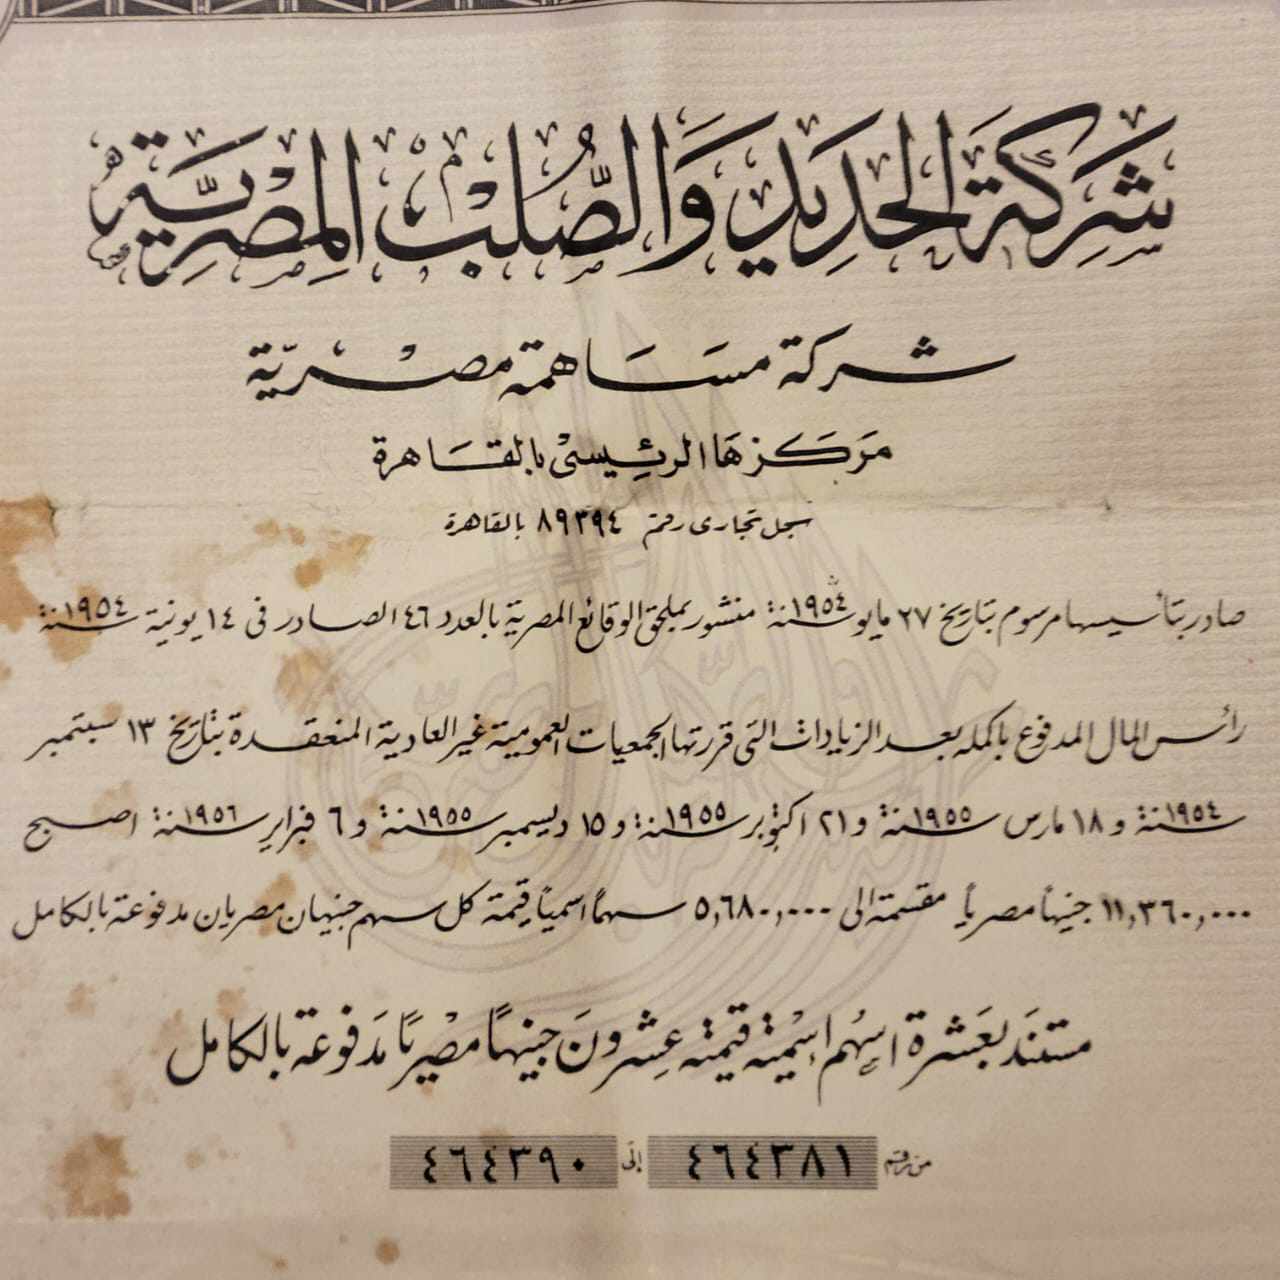 شَرِكَةَ الحَدِيدِ وَالصُّلبْ المِصْرِيَّة
شركة مسَاهمة مصْريّة
مَركزهَا الرئِيسىْ بالقاهرة
سجل تجارى رقم ٨٩٣٩٤ بالقاهرة
صادر بتأسيسها مرسوم بتاريخ ٢٧ مايو سنة ١٩٥٤ منشور بملحق الوقائع المصرية بالعدد ٤٦ الصادر فى ١٤ يونية سنة ١٩٥٤
رأس المال المدفوع بأكمله بعد الزيادات التى قررتها الجمعيات العمومية غير العادية المنعقدة بتاريخ ١٣ سبتمبر
سنة ١٩٥٤ و ١٨ مارس سنة ١٩٥٥ و ٢١ اكتوبر سنة ١٩٥٥ و ١٥ ديسمبر سنة ١٩٥٥ و ٦ فبراير سنة ١٩٥٦ اصبح
١١,٣٦٠,٠٠٠ جنيهاً مصرياً مقسمة الى ٥,٦٨٠,٠٠٠ سهماً اسمياً قيمة كل سهم جنيهان مصريان مدفوعة بالكامل
مستنَد بعَشرة اسهُم إسْمية قيمة عِشرونَ جنيهًا مصْريًا مَدفوعة بالكامل
من رقم ٤٦٤٣٨١ إلى ٤٦٤٣٩٠